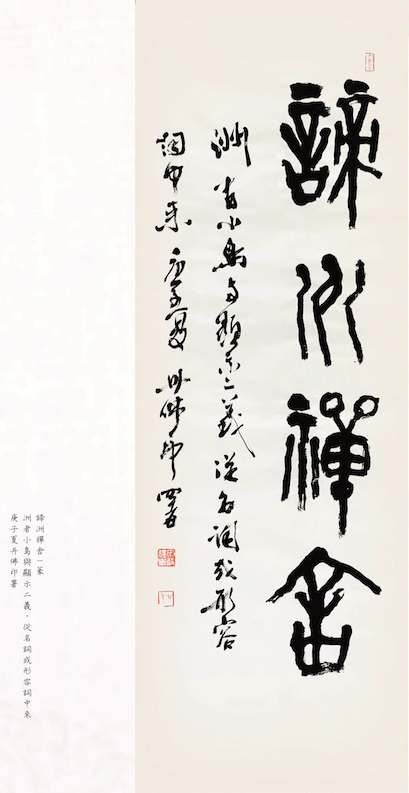 諦洲禪舍
洲者小島與顯示二義從名詞或形容
詞中來庚子夏丹佛印署
諦洲禪舍一篆
洲者小島與顯示二義，從名詞或形容詞中來
庚子夏丹佛印署